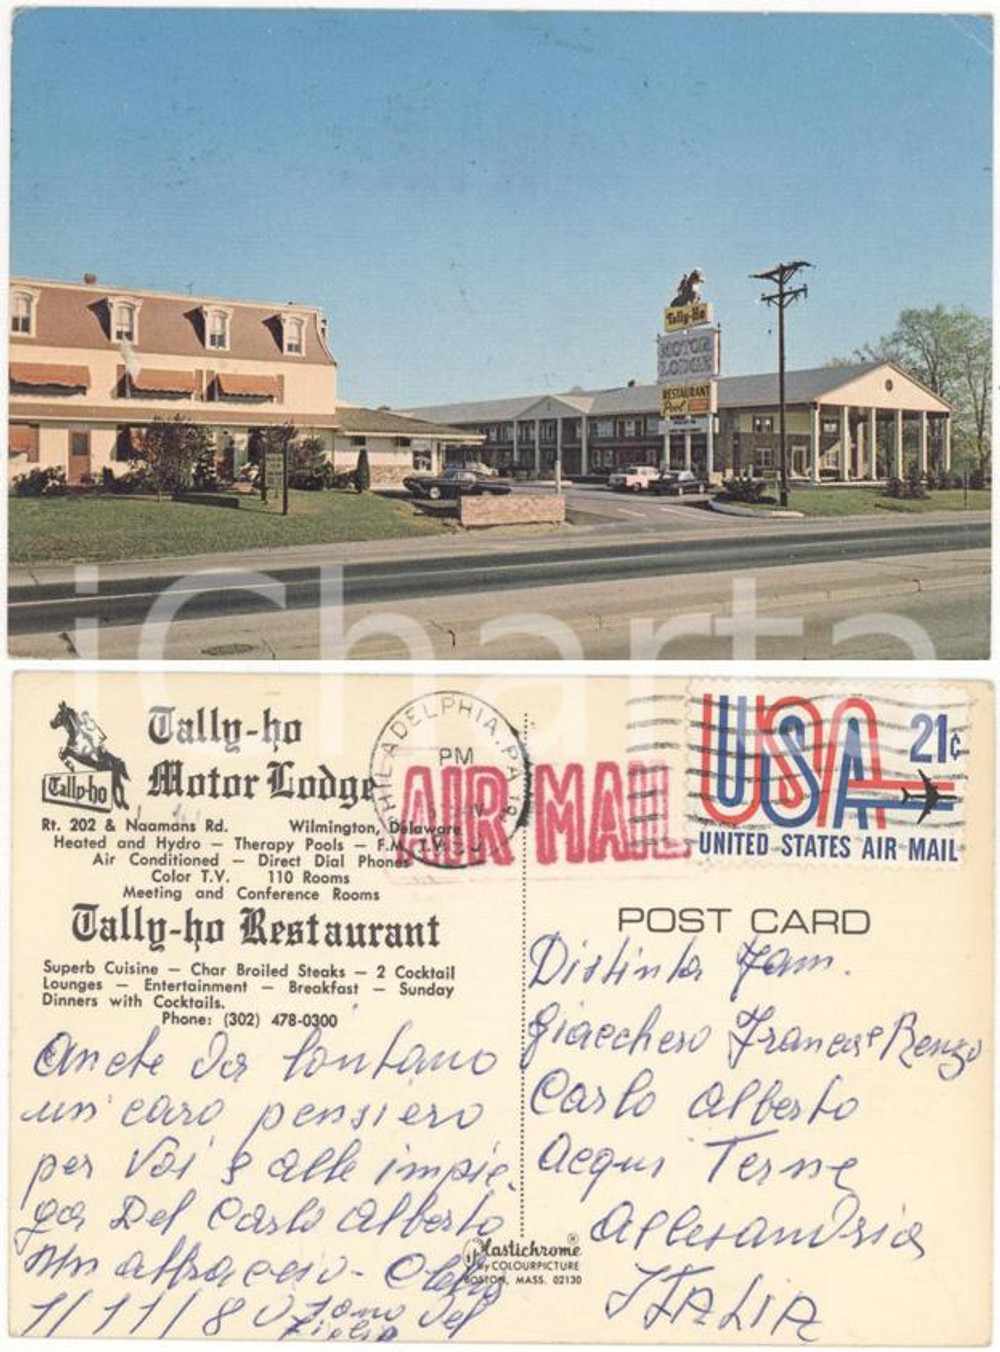 Tally-Ho
MOTOR
LODGE
RESTAURANT
Pool
iCharta
Tally-ho
Tally-ho
Motor Lodge
Rt. 202 & Naamans Rd. Wilmington, Delaware
Heated and Hydro — Therapy Pools — F.M. T.V.
Air Conditioned — Direct Dial Phones
Color T.V. 110 Rooms
Meeting and Conference Rooms
Tally-ho Restaurant
Superb Cuisine — Char Broiled Steaks — 2 Cocktail
Lounges — Entertainment — Breakfast — Sunday
Dinners with Cocktails.
Phone: (302) 478-0300
Anche da lontano
un caro pensiero
per voi e alle impie-
ga del Carlo Alberto
un abbraccio -
1/11/80
Plastichrome®
by COLOURPICTURE
BOSTON, MASS. 02130
PHILADELPHIA, PA
PM
AIR MAIL
USA
21¢
UNITED STATES AIR MAIL
POST CARD
Distinta Fam.
Giacchero Renzo
Carlo Alberto
Acqui Terme
Allesandria
ITALIA